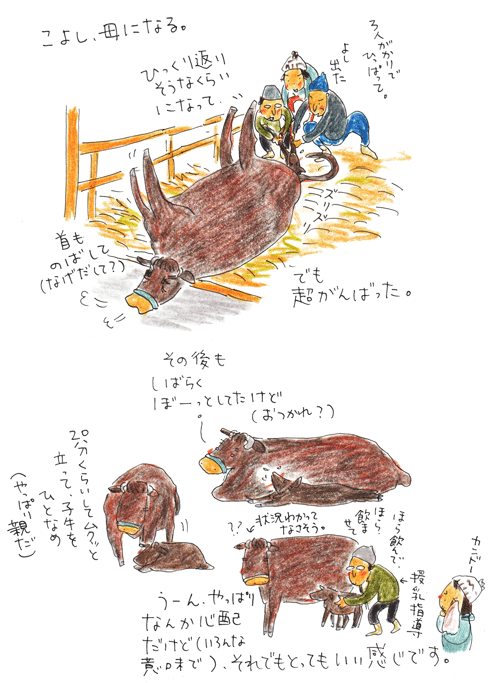 こよし、母になる。
3人がかりで
ひっぱって。
よし
出た
ひっくり返り
そうなくらい
になって…
ズリズリ
首も
のばして
(なげだして?)
でも
超がんばった。
その後も
しばらく
ぼーっとしてたけど
(おつかれ?)
20分くらいしてムクッと
立って、子牛を
ひとなめ
(やっぱり親だ)
??
状況わかって
なさそう。
ほら飲んで…
ほら?
飲ませて
←授乳指導
カンドー
うーん、やっぱり
なんか心配
だけど(いろんな
意味で)、それでもとってもいい感じです。